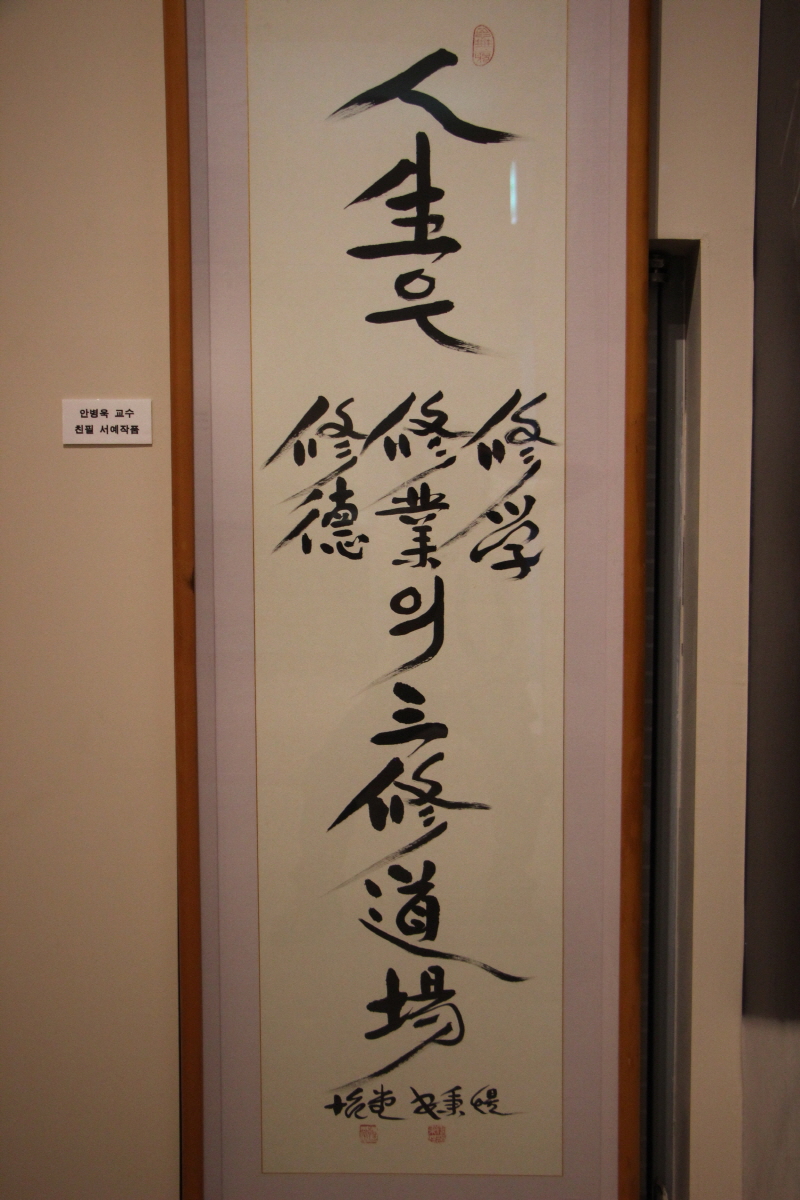 人生은
修学
修業
修德
의 三修道場
怡堂 安秉煜
안병욱 교수
친필 서예작품